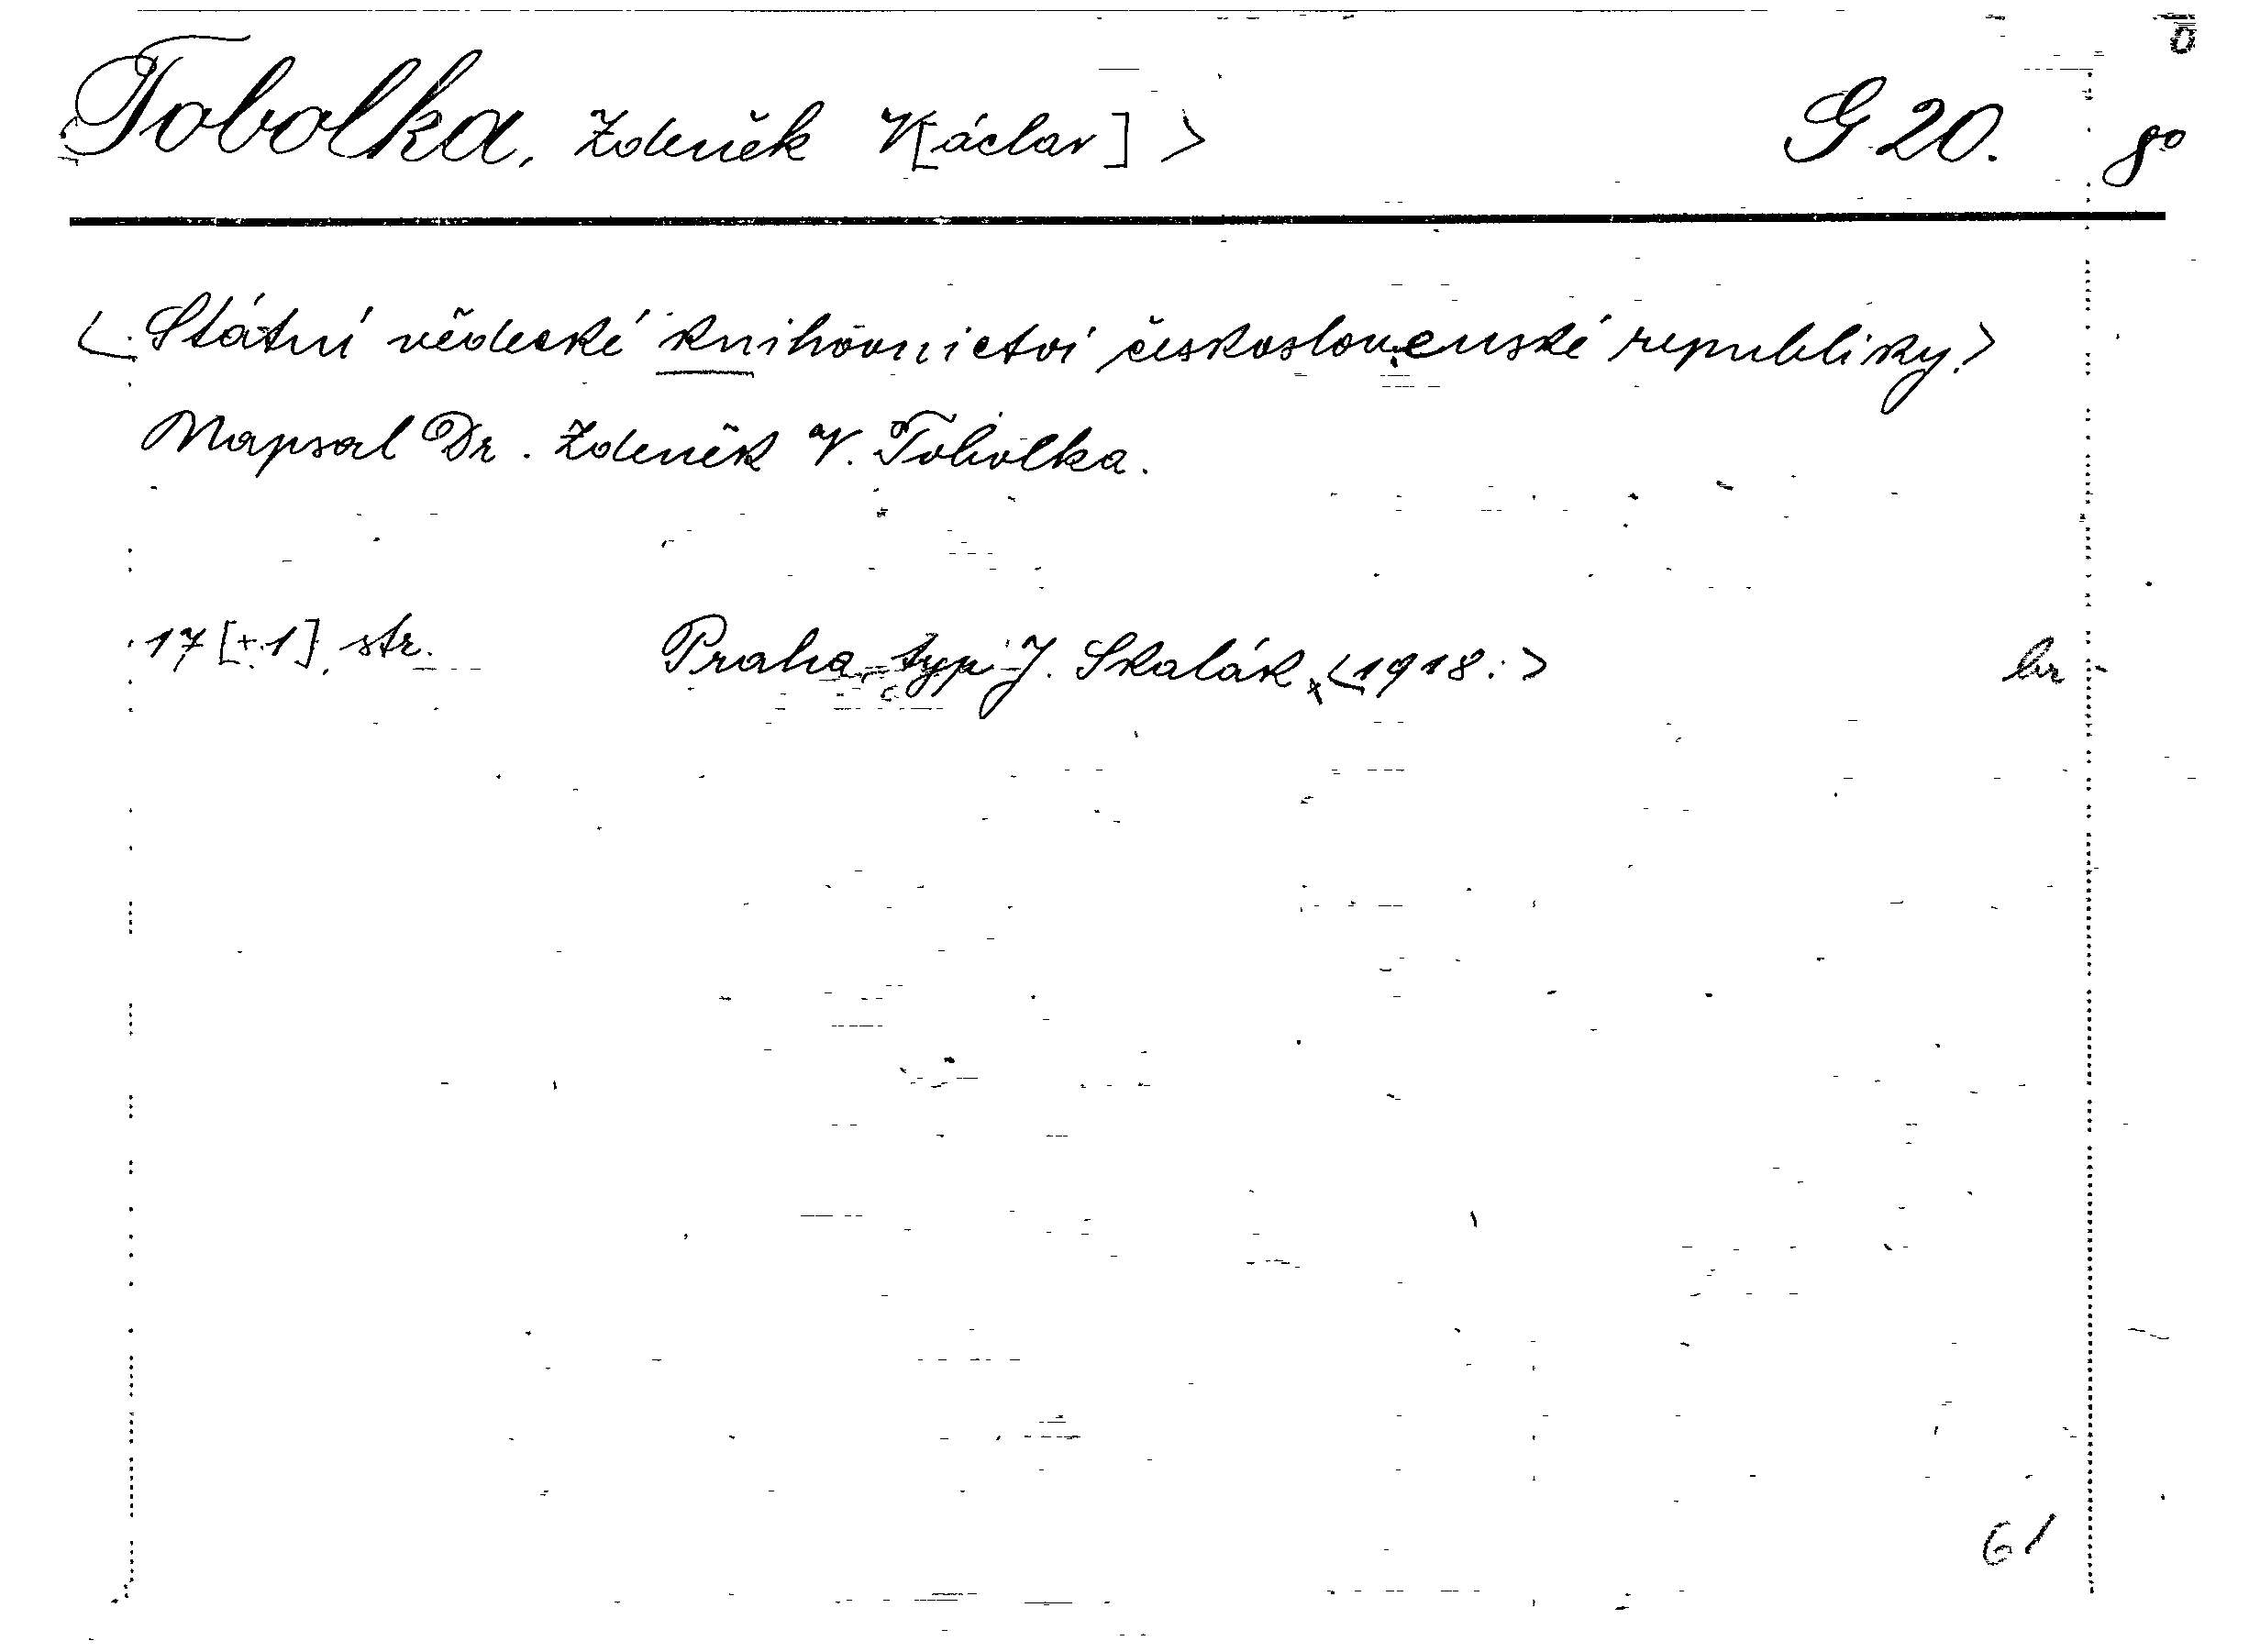 Tobolka, Zdeněk V[áclav] > G 20. 8°
<Státní vědecké knihovnictví československé republiky.>
Napsal Dr. Zdeněk V. Tobolka.
17 [+1] str. Praha, typ J. Skalák, <1918.> br
61